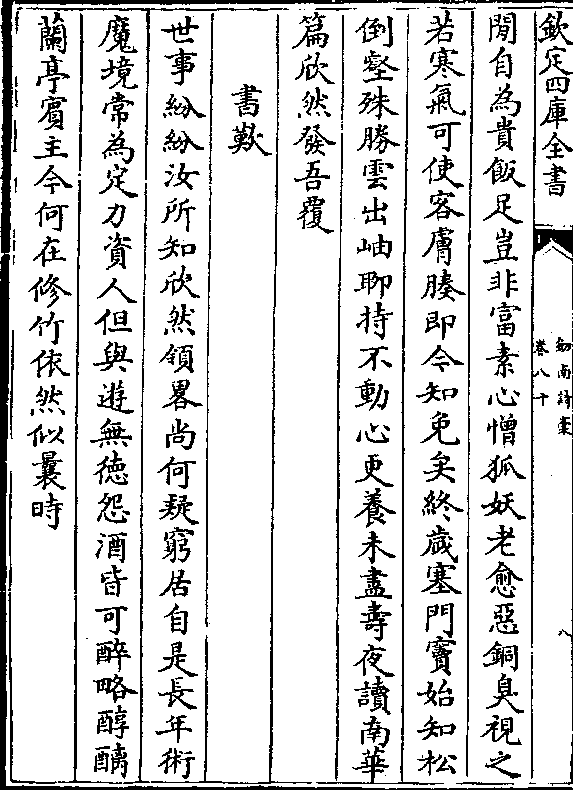 欽定四庫全書
劒南詩稾
卷八十
八
閒自為貴飯足豈非富素心憎狐妖老愈惡銅臭視之
若寒氣可使客膚腠即今知免矣終歲塞門竇始知松
倒壑殊勝雲出岫聊持不動心更養未盡壽夜讀南華
篇欣然發吾覆
書歎
世事紛紛汝所知欣然領畧尚何疑窮居自是長年術
魔境常為定力資人但與遊無徳怨酒皆可醉略醇醨
蘭亭賓主今何在修竹依然似曩時